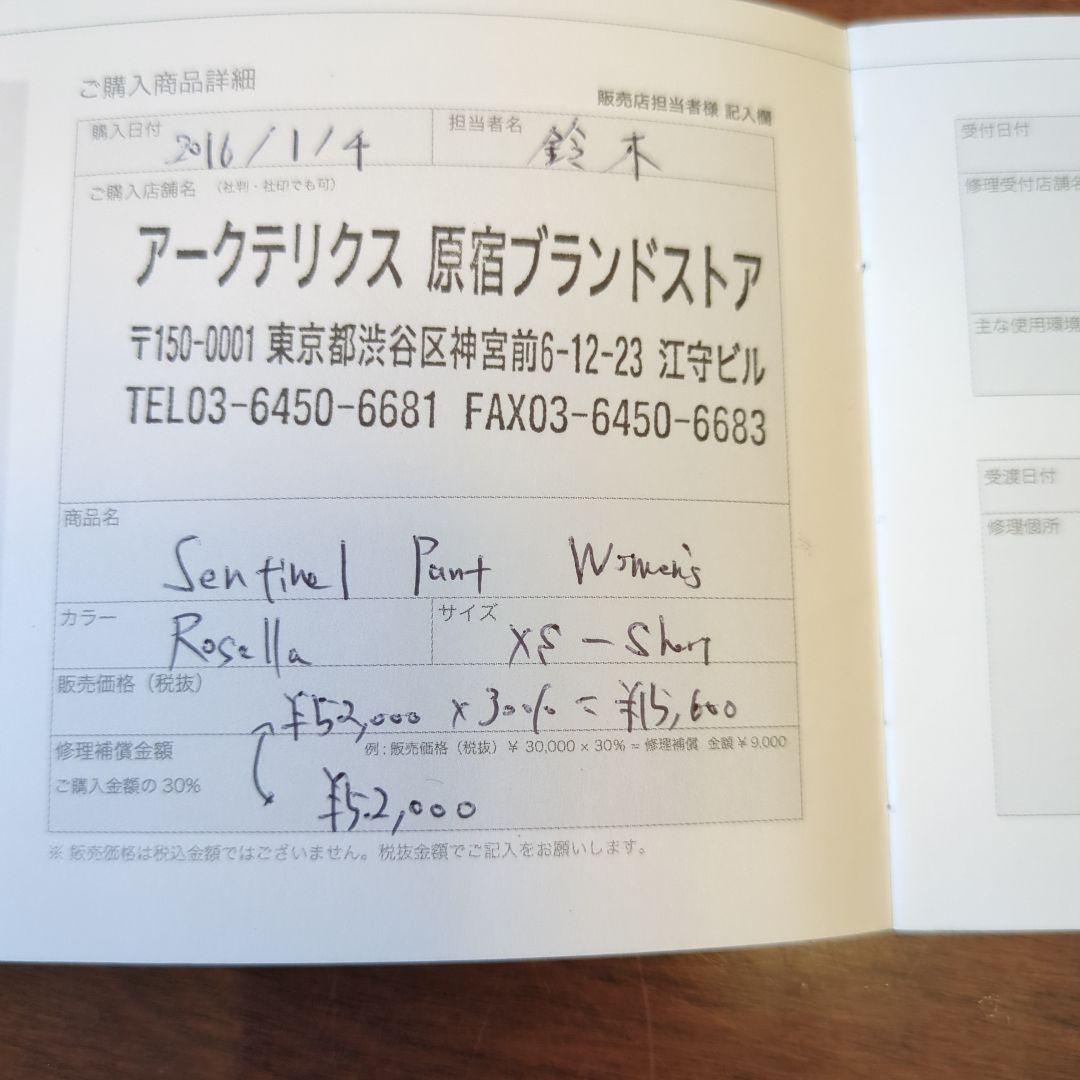 ご購入商品詳細
販売店担当者様 記入欄
購入日付 2016/1/4 担当者名 鈴木
ご購入店舗名 (社判・社印でも可)
アークテリクス 原宿ブランドストア
〒150-0001 東京都渋谷区神宮前6-12-23 江守ビル
TEL03-6450-6681 FAX03-6450-6683
商品名
Sentinel Pant Women's
カラー Rosella サイズ XS-Short
販売価格（税抜） ¥52,000 × 30% = ¥15,600
修理補償金額 例：販売価格（税抜）¥ 30,000 × 30% = 修理補償 金額 ¥ 9,000
ご購入金額の 30% ¥52,000
※ 販売価格は税込金額ではございません。税抜金額でご記入をお願いします。
受付日付
修理受付店舗名
主な使用環境
受渡日付
修理個所